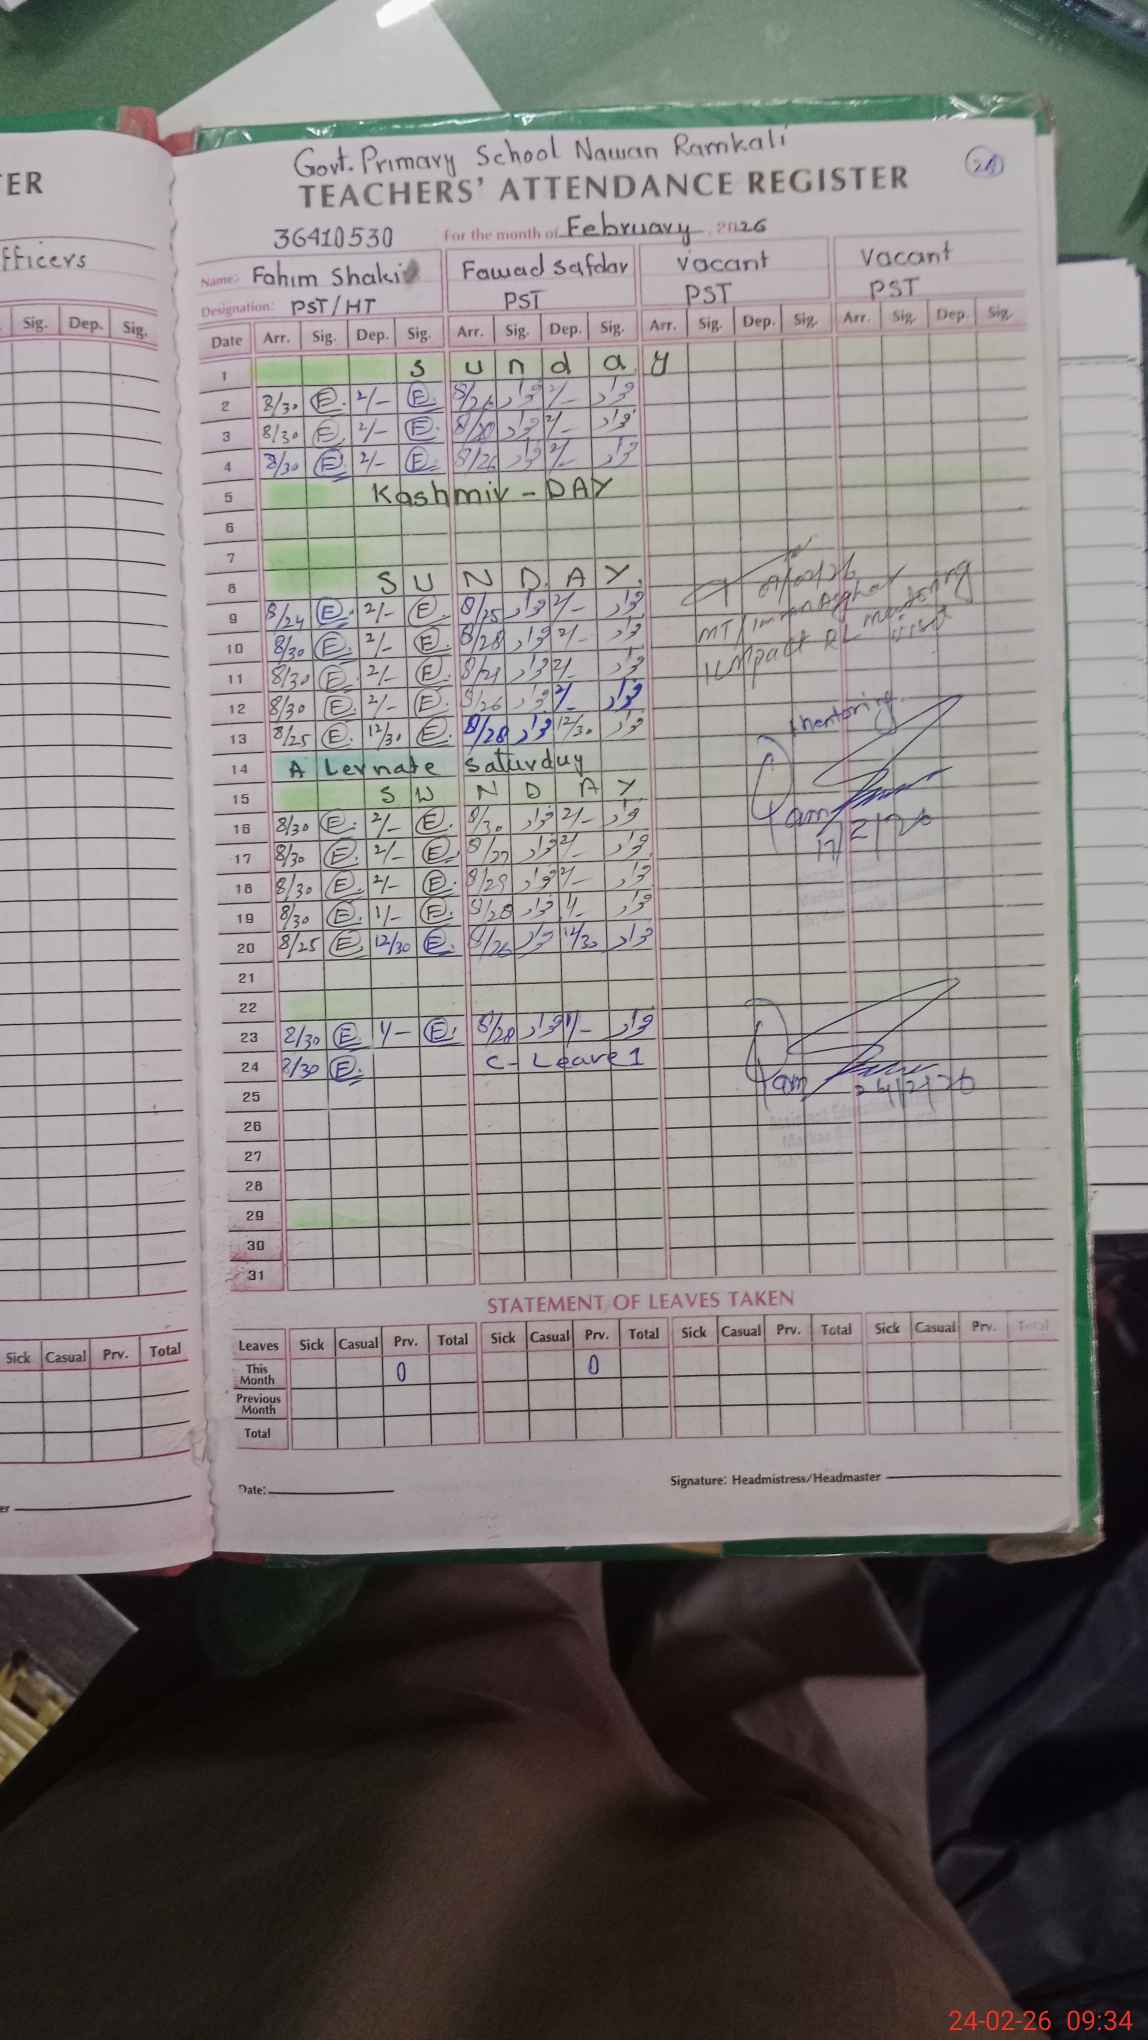 Govt. Primary School Nawan Ramkali
TEACHERS' ATTENDANCE REGISTER
24
36410530 For the month of February 2026
Name: Fahim Shakir Fawad Safdar Vacant Vacant
Designation: PST/HT PST PST PST
Date Arr. Sig. Dep. Sig. Arr. Sig. Dep. Sig. Arr. Sig. Dep. Sig. Arr. Sig. Dep. Sig.
1 Sunday
2 8/30 E 2/- E 8/26 فواد 2/- فواد
3 8/30 E 2/- E 8/30 فواد 2/- فواد
4 8/30 E 2/- E 8/26 فواد 2/- فواد
5 Kashmir - DAY
6
7
8 SUNDAY
9 8/24 E 2/- E 8/25 فواد 2/- فواد
10 8/30 E 2/- E 8/28 فواد 2/- فواد
11 8/30 E 2/- E 8/29 فواد 2/- فواد
12 8/30 E 2/- E 8/26 فواد 2/- فواد
13 8/25 E 12/30 E 8/28 فواد 12/30 فواد
14 A Lernate Saturday
15 SUNDAY
16 8/30 E 2/- E 8/30 فواد 2/- فواد
17 8/30 E 2/- E 8/27 فواد 2/- فواد
18 8/30 E 2/- E 8/29 فواد 2/- فواد
19 8/30 E 1/- E 8/28 فواد 1/- فواد
20 8/25 E 12/30 E 8/26 فواد 12/30 فواد
21
22
23 8/30 E 1/- E 8/28 فواد 1/- فواد
24 8/30 E C-Leave 1
25
26
27
28
29
30
31
Mentoring
17/2/26
24/2/26
STATEMENT OF LEAVES TAKEN
Leaves Sick Casual Prv. Total Sick Casual Prv. Total Sick Casual Prv. Total Sick Casual Prv. Total
This Month 0 0
Previous Month
Total
Date:
Signature: Headmistress/Headmaster
ER
fficers
Sig. Dep. Sig.
Sick Casual Prv. Total
er
24-02-26 09:34